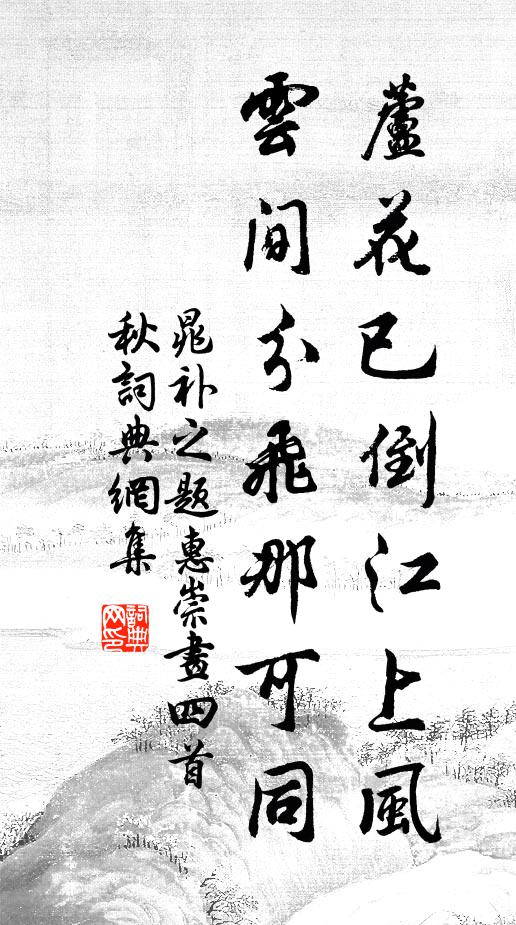 蘆花已倒江上風
雲間分飛那可同
晁補之題惠崇畫四首
秋詞典網集
詞典网印